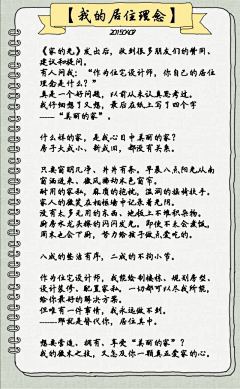 【我的居住理念】
《家的光》发出后，收到很多朋友们的赞同、
建议和提问。
有人问我：“作为住宅设计师，你自己的居住
理念是什么？”
真是一个好问题，以前从未认真思考过。
我仔细想了又想，最后在纸上写了四个字
——“美丽的家”。
什么样的家，是我心目中美丽的家？
房子大或小、新或旧，都没有关系。
只要窗明几净、井井有条。早晨八点阳光从南
窗洒进来、微风拂动米色窗帘。
耐用的家私，麻质的抱枕，温润的榆树扶手。
家人的微笑在相框墙中记录着光阴。
没有太多无用的东西，地板上不堆积杂物。
厨房水龙头擦的闪闪发亮，即使不太会煮饭，
周末也会下厨，努力给孩子做点爱吃的。
八成的整洁有序，二成的不拘小节。
作为住宅设计师，我能绘制楼梯、规划房型、
设计装修、配置家私，一切都可以尽我所能，
给你最好的解决方案。
但唯有一件事情，我永远做不到。
——即就是替代你，居住其中。
想要营造、拥有、享受“美丽的家”？
我的微末之技，又怎及你一颗真正爱家的心。